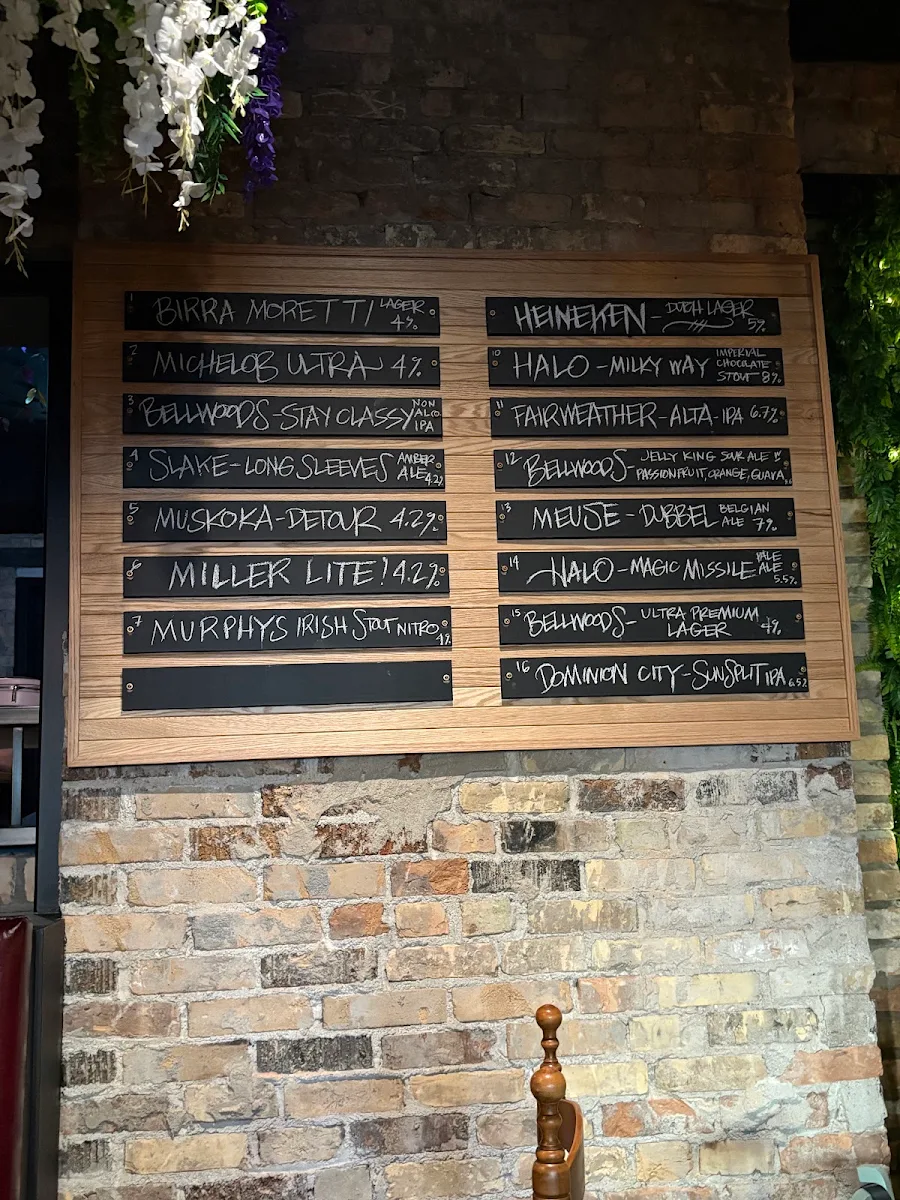 1 BIRRA MORETTI LAGER 4%
2 MICHELOB ULTRA 4%
3 BELLWOODS-STAY CLASSY NON ALC. IPA
4 SLAKE-LONG SLEEVES AMBER ALE 4.2%
5 MUSKOKA-DETOUR 4.2%
6 MILLER LITE! 4.2%
7 MURPHYS IRISH STOUT NITRO 4%
HEINEKEN - DUTCH LAGER 5%
10 HALO - MILKY WAY IMPERIAL CHOCOLATE STOUT 8%
11 FAIRWEATHER-ALTA-IPA 6.7%
12 BELLWOODS- JELLY KING SOUR ALE W/
PASSIONFRUIT, ORANGE, GUAVA,
13 MEUSE - DUBBEL BELGIAN ALE 7%
14 HALO-MAGIC MISSILE PALE ALE 5.5%
15 BELLWOODS- ULTRA PREMIUM
LAGER 4%
16 DOMINION CITY-SUNSPLIT IPA 6.5%